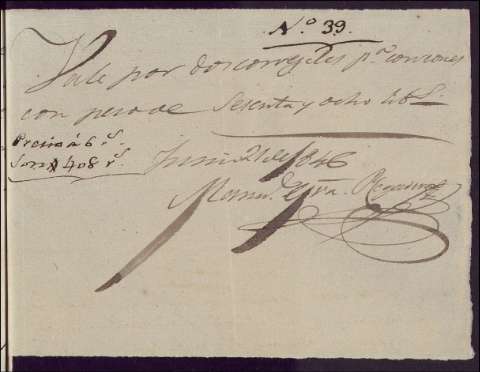 N.º 39.
Vale por dos correjeles p.ª correones
con peso de Sesenta y ocho lib.s
Precio á 6 r.s
Son 408 r.s
Junio 21 de 1846
Man.l